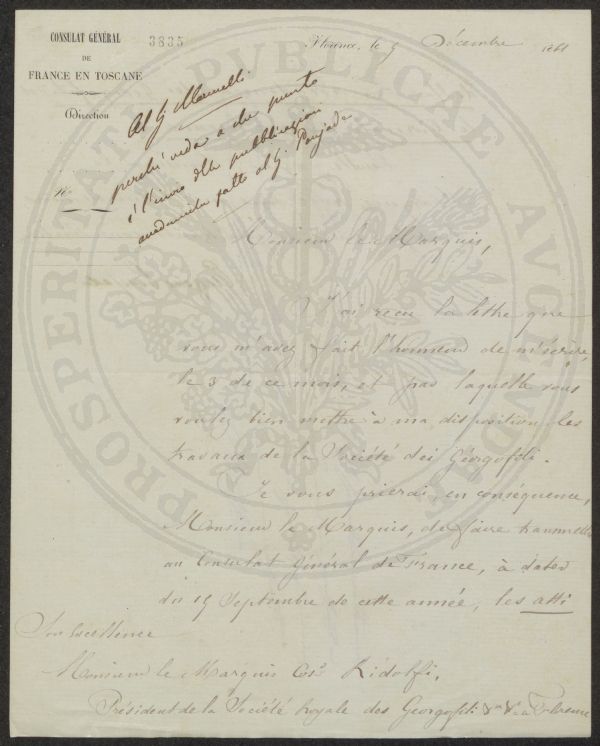 CONSULAT GÉNÉRAL
DE
FRANCE EN TOSCANE
Direction
N.
3835
Florence, le 9 Décembre 1861
Al G Marmelli
perché veda a che punto
è l'invio delle pubblicazioni
accademiche fatto al G. Poujade
Monsieur le Marquis,
J'ai reçu la lettre que
vous m'avez fait l'honneur de m'écrire
le 3 de ce mois, et par laquelle vous
voulez bien mettre à ma disposition les
travaux de la Société dei Géorgofili.
Je vous prierai, en conséquence,
Monsieur le Marquis, de faire transmettre
au Consulat Général de France, à dater
du 19 Septembre de cette année, les atti
Son Excellence
Monsieur le Marquis Cos. Ridolfi,
Président de la Société royale des Georgofili à Florence
PROSPERITATI PUBLICAE AUGENDAE